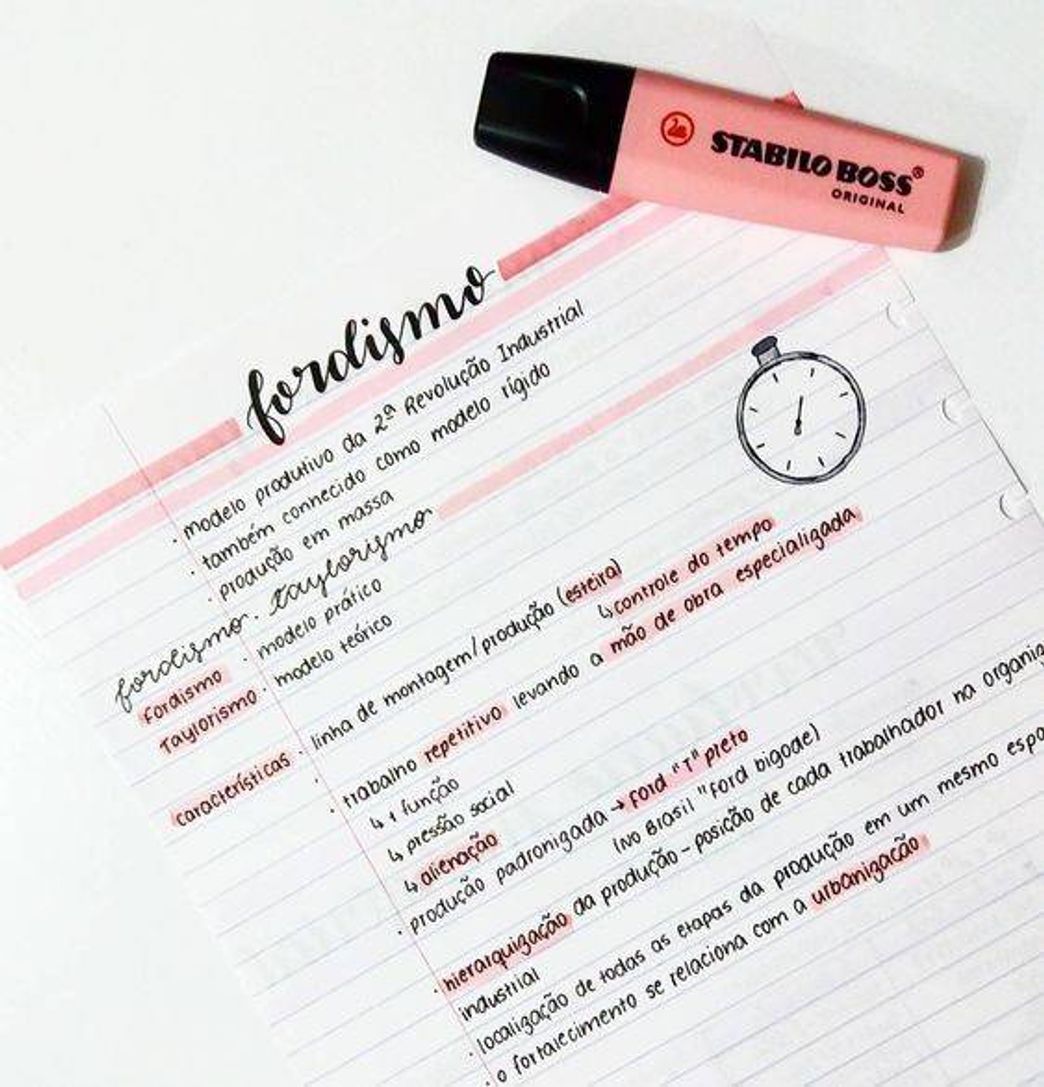 STABILO BOSS®
ORIGINAL
fordismo
· modelo produtivo da 2ª Revolução Industrial
· também conhecido como modelo rígido
· produção em massa
fordismo · taylorismo
fordismo · modelo prático
Taylorismo · modelo teórico
características · linha de montagem/produção (esteira)
↳ controle do tempo
· trabalho repetitivo levando a mão de obra especializada
↳ 1 função
↳ pressão social
↳ alienação
· produção padronizada → Ford "T" preto
(no Brasil "Ford bigode)
· hierarquização da produção - posição de cada trabalhador na
industrial
· localização de todas as etapas da produção em um mesmo
· o fortalecimento se relaciona com a urbanização